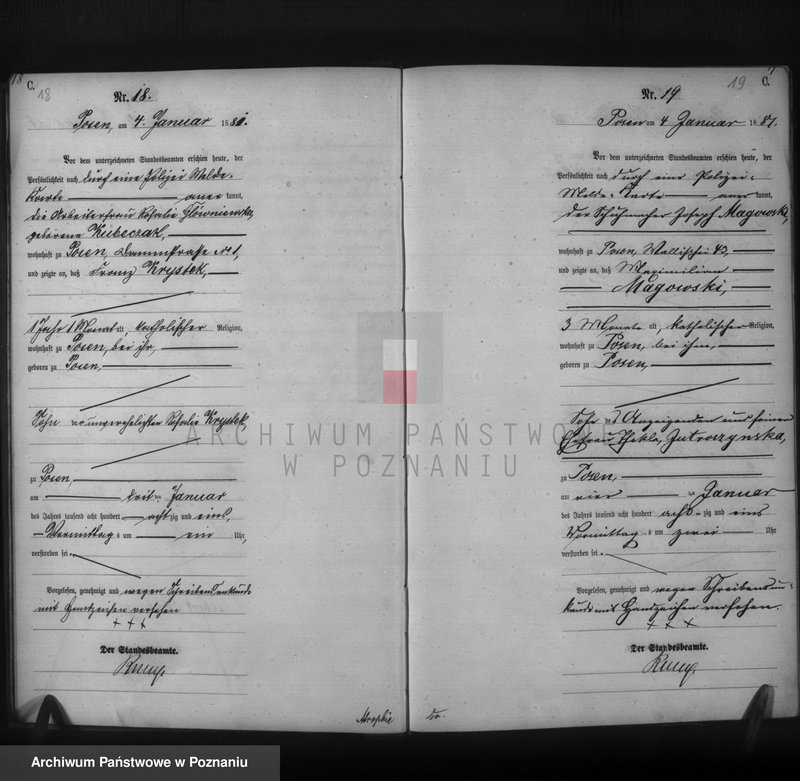 18
C.
18
Nr. 18.
Posen, am 4. Januar 1881.
Vor dem unterzeichneten Standesbeamten erschien heute, der
Persönlichkeit nach durch eine Polizei Melde-
Karte aner kannt,
die Arbeiterfrau Rosalie Głowniewska,
geborene Kubeczak,
wohnhaft zu Posen, Dammstrasse No 1,
und zeigte an, daß Franz Krystek,
1 Jahr 1 Monat alt, katholischer Religion,
wohnhaft zu Posen, bei ihr,
geboren zu Posen,
Sohn der unverehelichten Rosalie Krystek,
zu Posen,
am ten Januar
des Jahres tausend acht hundert acht zig und eins,
Vormittags um ein Uhr,
verstorben sei.
Vorgelesen, genehmigt und wegen Schreibensunkunde
mit Handzeichen versehen
+ + +
Der Standesbeamte.
19
C.
Nr. 19
Posen am 4 Januar 1881.
Vor dem unterzeichneten Standesbeamten erschien heute, der
Persönlichkeit nach durch eine Polizei-
Melde-Karte aner kannt,
der Schuhmacher Joseph Magowski,
wohnhaft zu Posen, Wallischei
und zeigte an, daß Maximilian
Magowski,
3 Monate alt, katholischer Religion,
wohnhaft zu Posen, bei ihm,
geboren zu Posen,
Sohn des Anzeigenden und seiner
Ehefrau Thekla, Jutroszynska,
zu Posen,
am vier ten Januar
des Jahres tausend acht hundert acht zig und eins
Vormittags um zwei Uhr
verstorben sei.
Vorgelesen, genehmigt und wegen Schreibensun-
kunde mit Handzeichen versehen.
+ + +
Der Standesbeamte.
ARCHIWUM PAŃSTWOWE
W POZNANIU
Archiwum Państwowe w Poznaniu